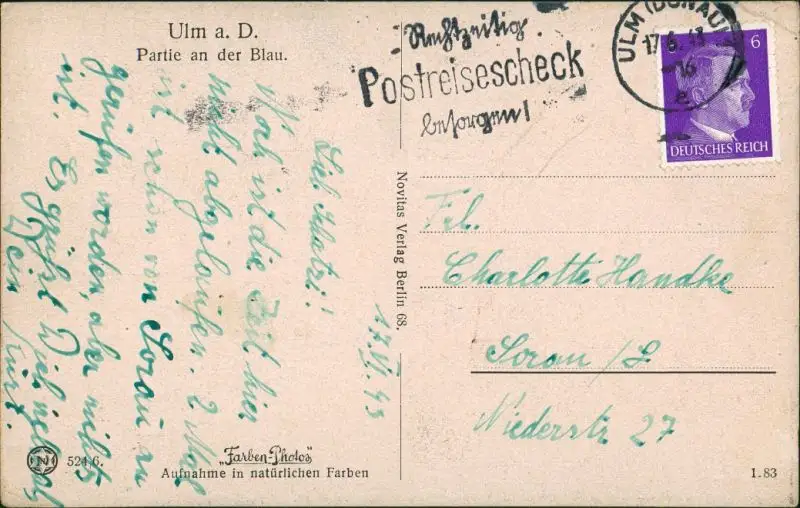 Ulm a. D.
Partie an der Blau.
Rechtzeitig
Postreisescheck
besorgen!
ULM (DONAU)
17.6.43
-16
e
6
DEUTSCHES REICH
17. VI. 43
Lieb
Noch ist die Zeit hier
nicht abgelaufen. 2 Mal
ist schon von Sorau an
gerufen worden, aber nichts
ist. Es grüßt Dich
Dein Kurt.
Novitas Verlag Berlin 68.
Frl.
Charlotte Handke
Sorau /L
Niederstr 27
N
5246.
"Farben-Photos"
Aufnahme in natürlichen Farben
1.83